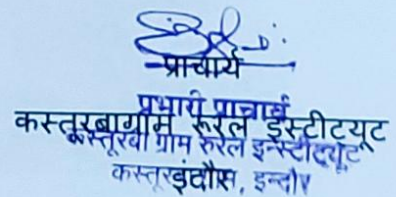 प्राचार्य
प्रभारी प्राचार्य
कस्तूरबाग्राम रूरल इंस्टीट्यूट
कस्तूरबा ग्राम रुरल इन्स्टीट्यूट
इंदौर
कस्तूरबाग्राम, इन्दौर